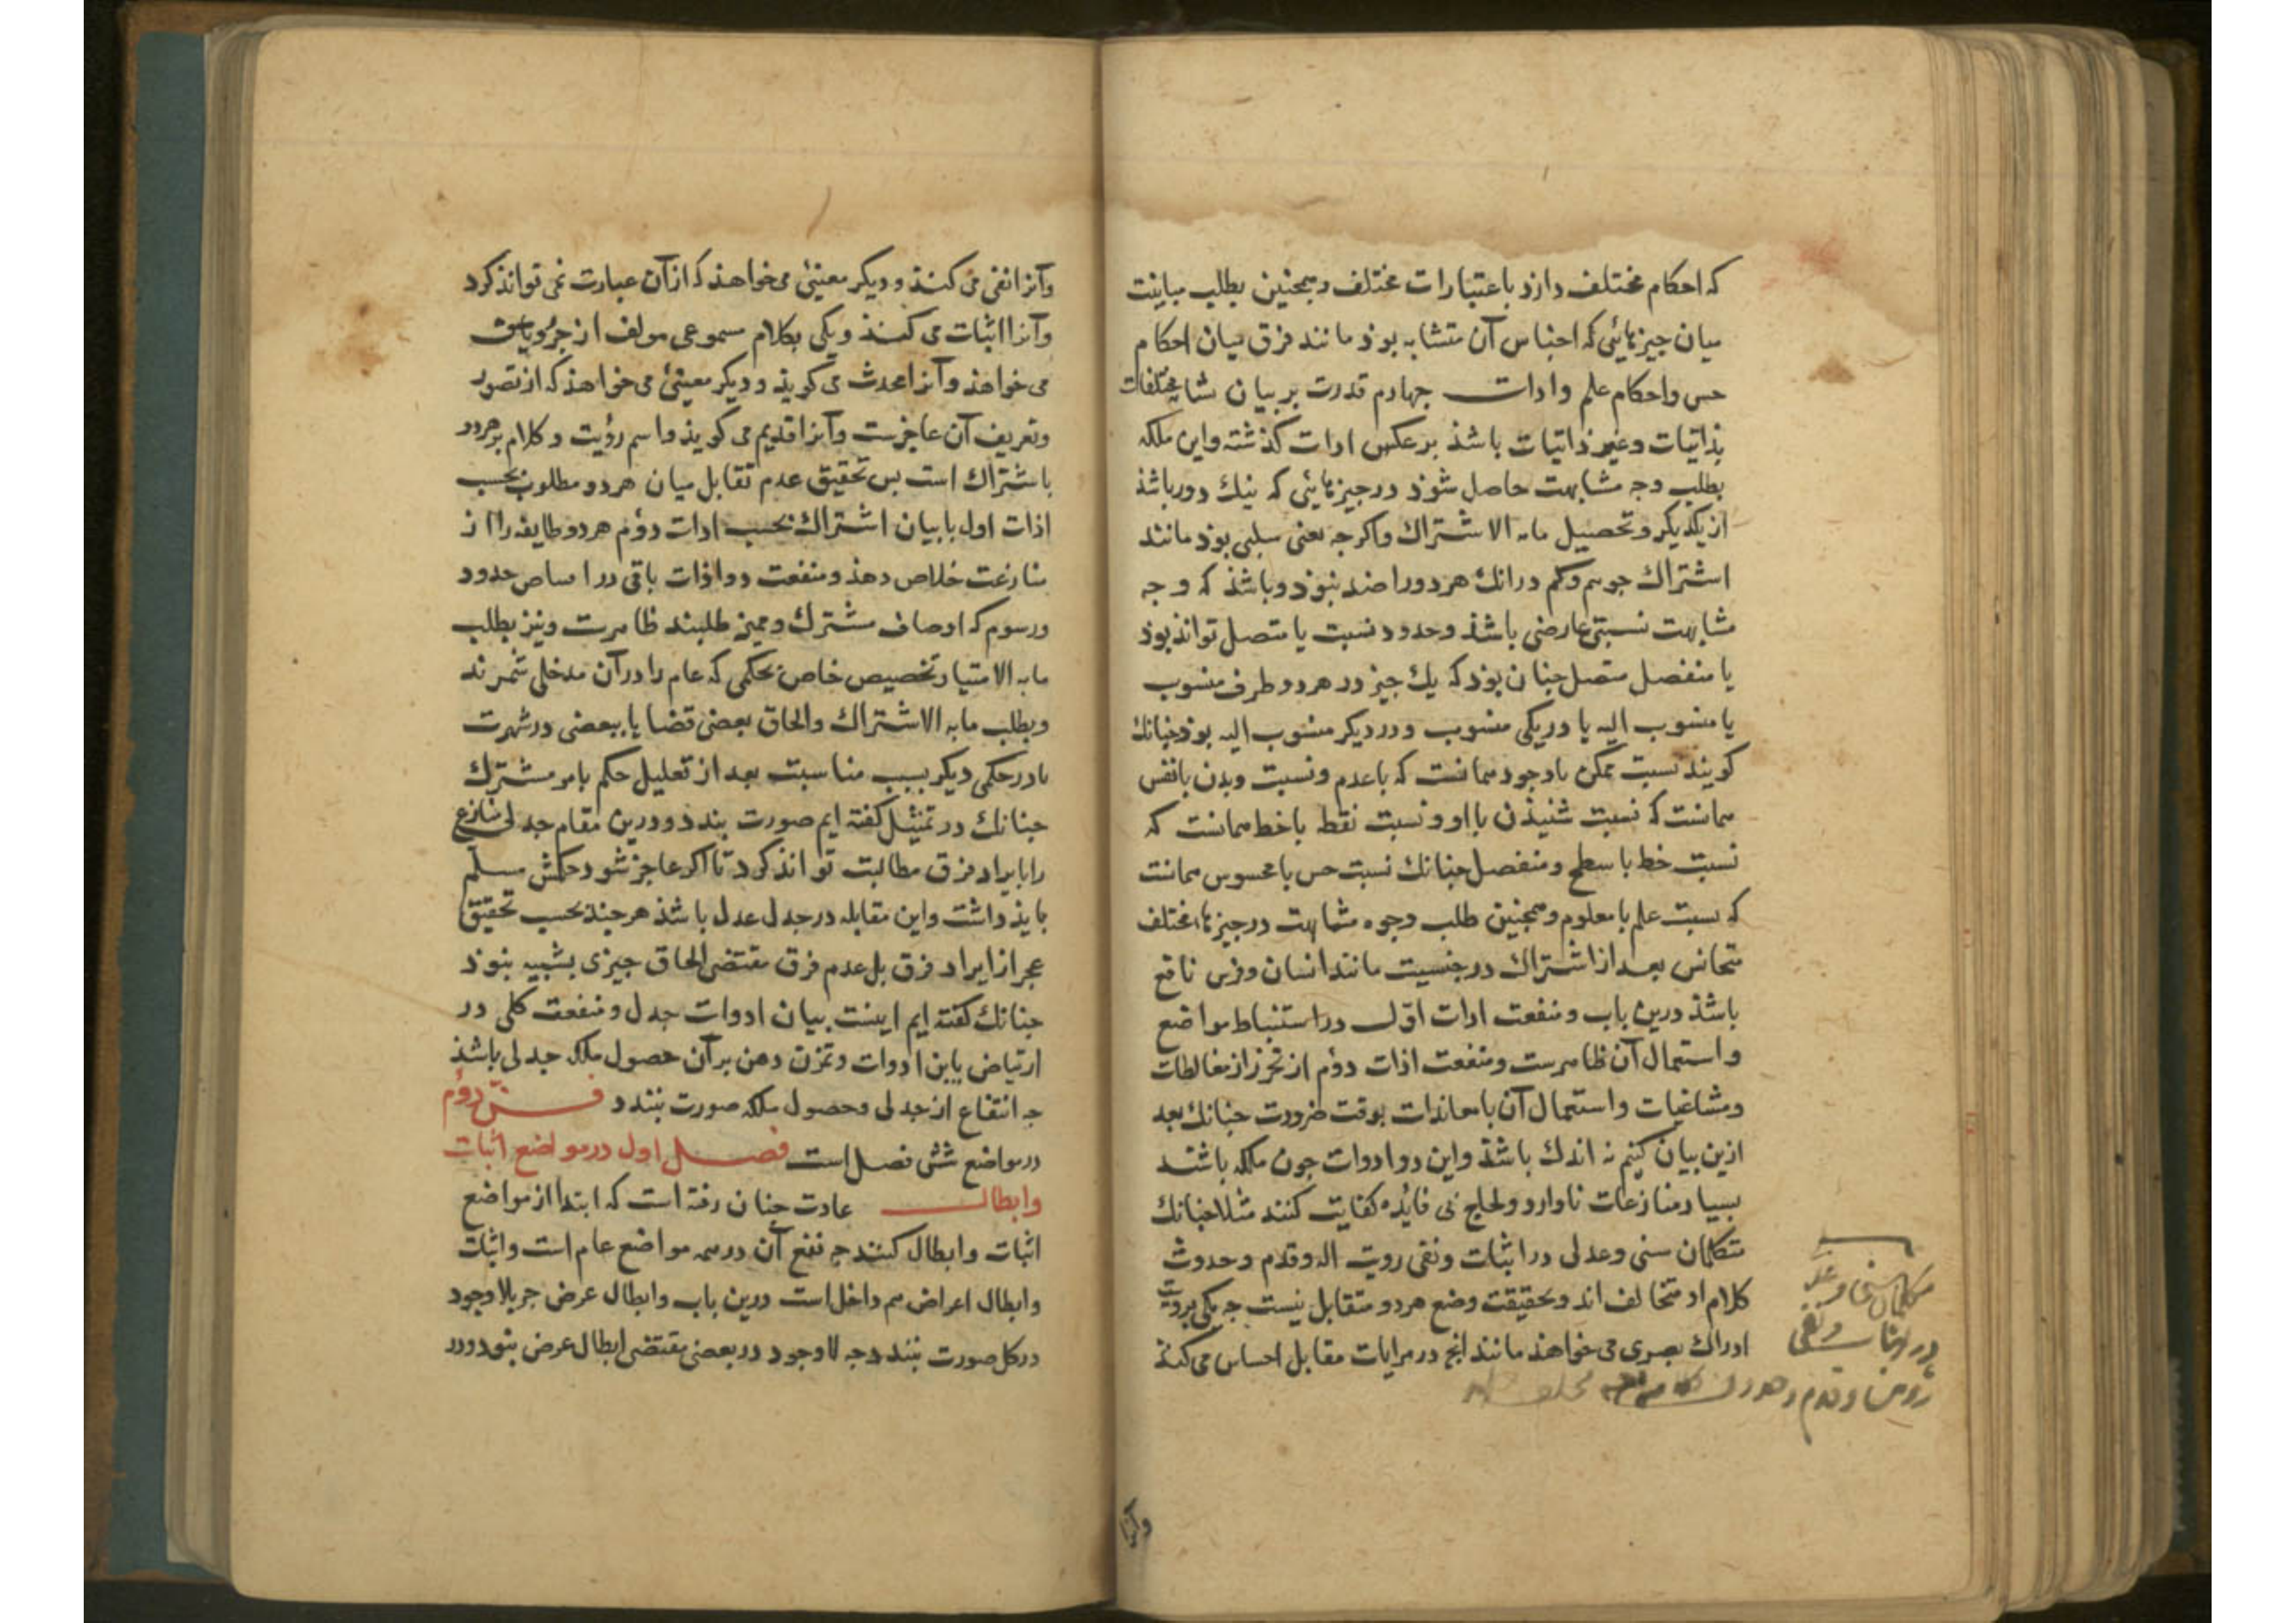 که احکام مختلف دارذ باعتبارات مختلف و همجنین بطلب مباینت
میان جیزهائی که اجناس آن متشابه بوذ مانند فرق میان احکام
حس و احکام علم و ادات جهارم قدرت بر بیان تشابه مختلفات
بذاتیات و غیر ذاتیات باشذ بر عکس ادات کذشته و این ملکه
بطلب وجه مشابهت حاصل شوذ در جیزهائی که نیك دور باشذ
از یکدیکر و تحصیل ما به الاشتراك و اکرجه بعنی سلبی بوذ مانند
اشتراك جوهر و کم در انك هر دو را ضد نبوذ و باشذ که وجه
مشابهت نسبتی عارضی باشذ و حدود نسبت یا متصل تواند بوذ
یا منفصل متصل جنان بوذ که یك جیز در هر دو طرف منسوب
یا منسوب الیه یا در یکی منسوب و در دیکر منسوب الیه بوذ جنانك
کویند نسبت ممکن با وجود همانست که با عدم و نسبت دیدن با نفس
همانست که نسبت شنیذن با او و نسبت نقطه با خط همانست که
نسبت خط با سطح و منفصل جنانك نسبت حس با محسوس همانست
که نسبت علم با معلوم و همجنین طلب وجوه مشابهت در جیزهاء مختلف
متجانس بعد از اشتراك در جنسیت مانند انسان و فرس نافع
باشذ درین باب و منفعت ادات اول در استنباط مواضع
و استعمال آن ظاهرست و منفعت اذات دوم از تحرز از مغالطات
و مشاغبات و استعمال آن با معاندات بوقت ضرورت جنانك بعد
ازین بیان کنیم نه اندك باشذ و این دو ادوات جون ملکه باشند
بسیار منازعات ناوارد و لجاج بی فایده کفایت کنند مثلا جنانك
متکلمان سنی و عدلی در اثبات و نفی رویت اله و قدم و حدوث
کلام او متخالف اند و بحقیقت وضع هر دو متقابل نیست جه یکی برویت
ادراك بصری می خواهذ مانند انج در مرایات مقابل احساس می کنذ
متکلمان سنی و عدلی
در اثبات و نفی
رویت و قدم و حدوث کلام
وآنرا
وآنرا نفی می کنذ و دیکر معنیئ می خواهذ که از آن عبارت نمی تواند کرد
وآنرا اثبات می کنذ و یکی بکلام مسموعی مولف از حروف
می خواهذ وآنرا محدث می کویذ و دیکر معنیئ می خواهذ که از تصور
و تعریف آن عاجزست وآنرا قدیم می کویذ و اسم رؤیت و کلام بر هر دو
باشتراك است بس تحقیق عدم تقابل میان هر دو مطلوب بحسب
اذات اول با بیان اشتراك بحسب ادات دوم هر دو طایفه را از
منازعت خلاص دهذ و منفعت دو اذات باقی در اقتناص حدود
و رسوم که اوصاف مشترك و ممیز طلبند ظاهرست و نیز بطلب
ما به الامتیاز تخصیص خاص بحکمی که عام را در آن مدخلی شمرند
و بطلب ما به الاشتراك والحاق بعضی قضایا ببعضی در شهرت
یا در حکمی دیکر بسبب مناسبت بعد از تعلیل حکم بامر مشترك
جنانك در تمثیل کفته ایم صورت بندد و درین مقام جدلی منازع
را بایراد فرق مطالبت تواند کرد تا اکر عاجز شود حکمش مسلم
بایذ داشت و این مقابله در جدل عدل باشذ هر جند بحسب تحقیق
عجز از ایراد فرق بل عدم فرق مقتضی الحاق جیزی بشبیه نبوذ
جنانك کفته ایم اینست بیان ادوات جدل و منفعت کلی در
ارتیاض باین ادوات و تمرن ذهن بر آن حصول ملکه جدلی باشذ
جه انتفاع از جدلی بحصول ملکه صورت بندد فن دوم
در مواضع شش فصل است فصل اول در مواضع اثبات
و ابطال عادت جنان رفته است که ابتدا از مواضع
اثبات و ابطال کنند جه نفع آن در همه مواضع عام است و اثبات
و ابطال اعراض هم داخل است درین باب و ابطال عرض جز بلا وجود
در کل صورت نبندد جه لا وجود در بعضی مقتضی ابطال عرض نبود و در